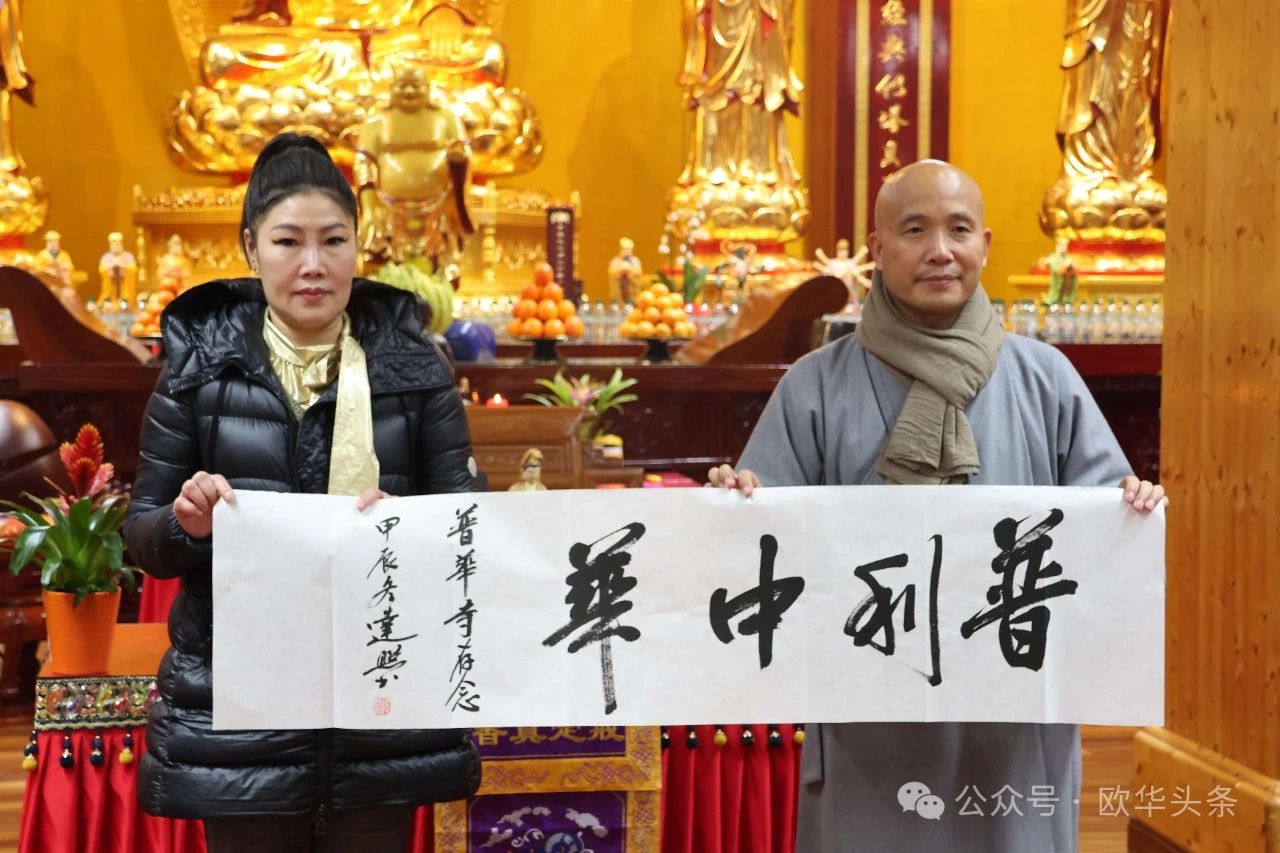 普利中華
普華寺存念
甲辰冬達照
戒定真香
公众号 · 欧华头条